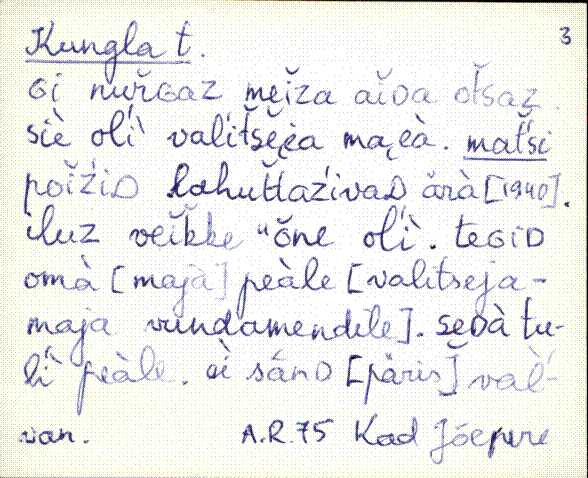 Kungla t. 3
Gi nuŕGaz meiza aiDa otsaz.
siè oli valitseia maeà. mat́si
poižiD lahut́tazivaD ärà [1940].
iluz veikke "õne oli. teGiD
omà [majà] peàle [valitseja-
maja vundamendile]. seDà tu-
li peàle. ei sanD [päris] val-
van. A.R.75 Kad Jõepere